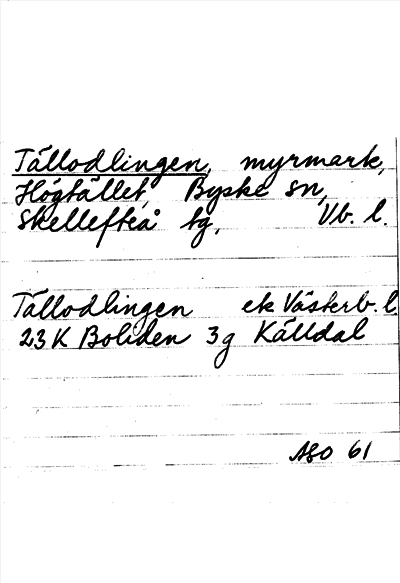 Tällodlingen, myrmark,
Högfället, Byske sn,
Skellefteå tg, Vb. l.
Tällodlingen ek Västerb. l
23 K Boliden 3g Källdal
ASO 61